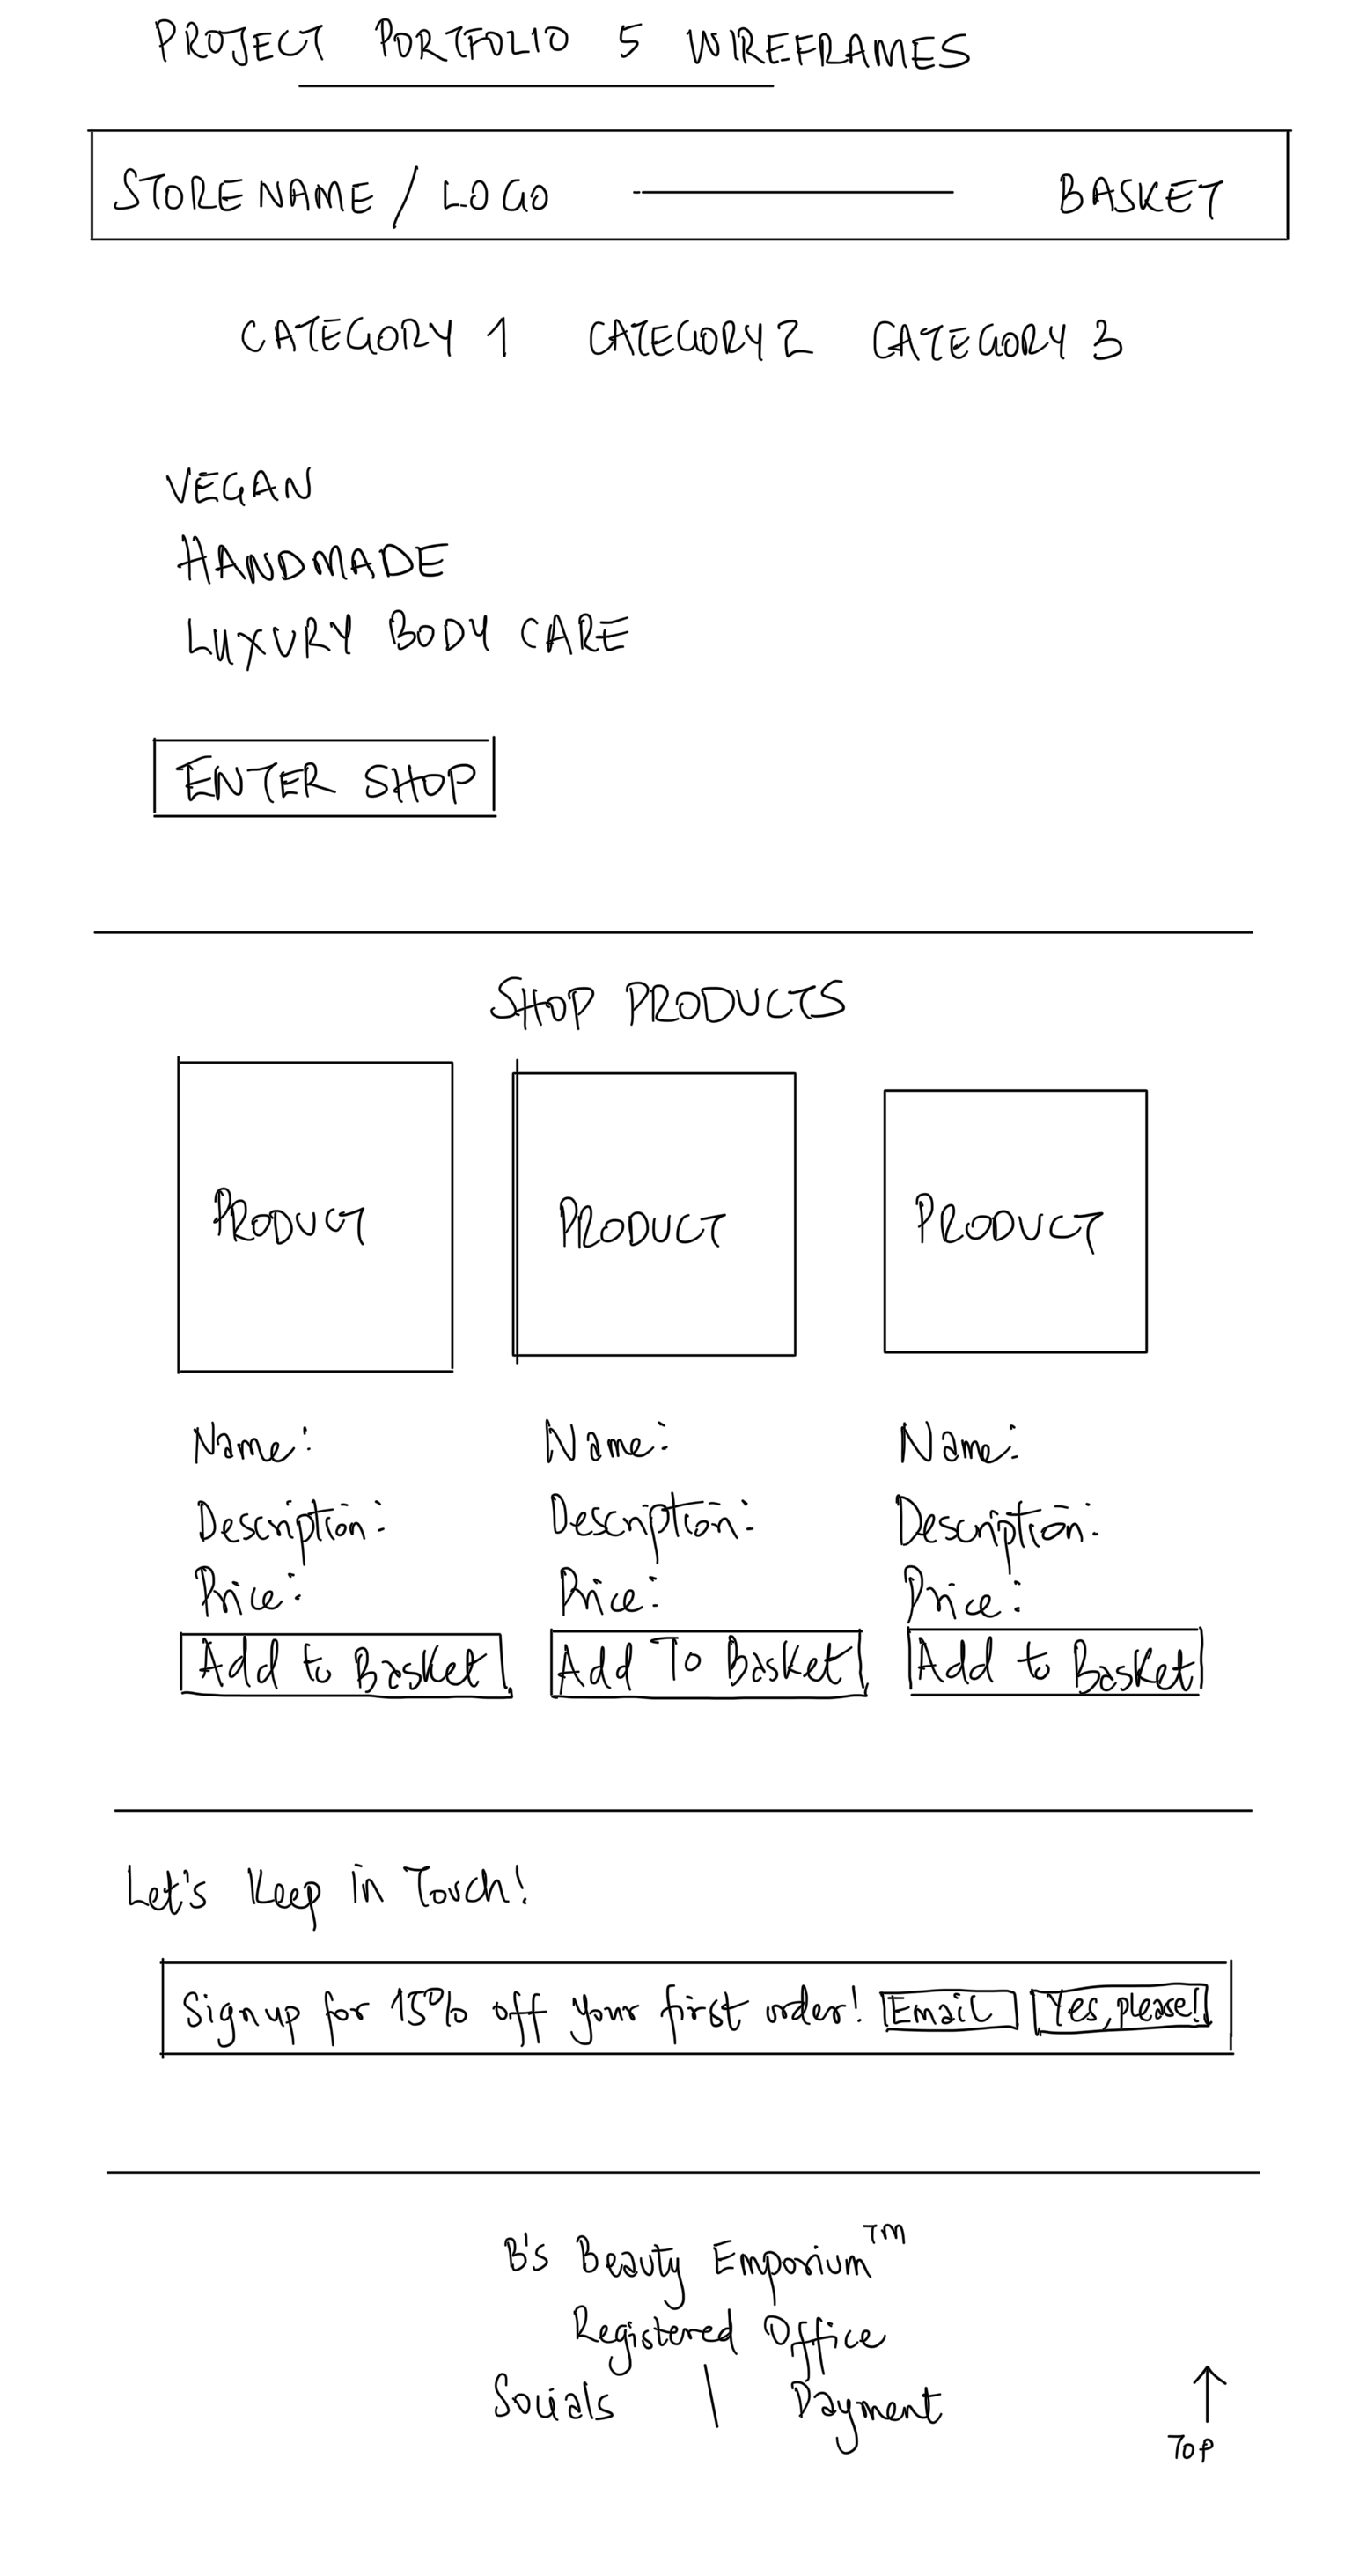 PROJECT PORTFOLIO 5 WIREFRAMES
STORE NAME / LOGO BASKET
CATEGORY 1 CATEGORY 2 CATEGORY 3
VEGAN
HANDMADE
LUXURY BODY CARE
ENTER SHOP
SHOP PRODUCTS
PRODUCT PRODUCT PRODUCT
Name: Name: Name:
Description: Description: Description:
Price: Price: Price:
Add to Basket Add To Basket Add to Basket
Let's Keep in Touch!
Signup for 15% off your first order! Email Yes, please!
B's Beauty Emporium™
Registered Office
Socials | Payment
↑
TOP